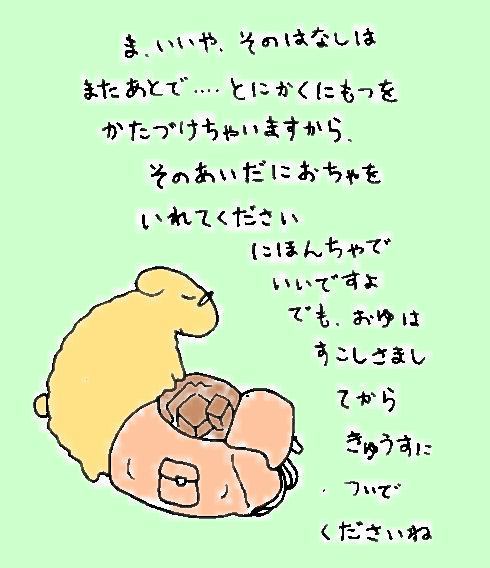 ま、いいや、そのはなしは
またあとで‥‥とにかくにもつを
かたづけちゃいますから、
そのあいだにおちゃを
いれてください
にほんちゃで
いいですよ
でも、おゆは
すこしさまし
てから
きゅうすに
ついで
くださいね